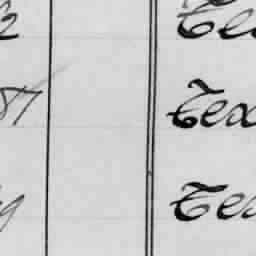 2 Tex
87 Tex
9 Tex